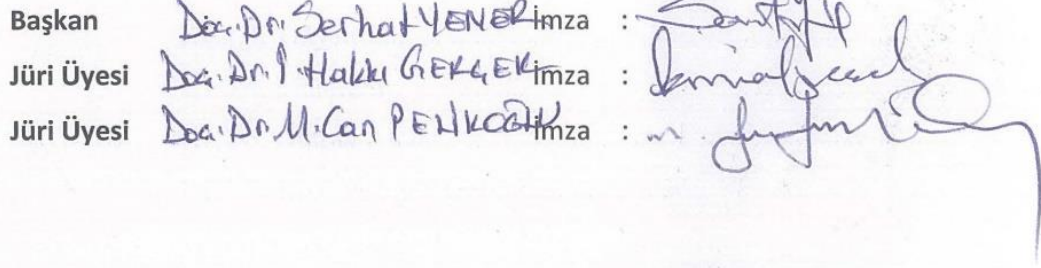 Başkan Doç. Dr. Serhat YENER İmza :
Jüri Üyesi Doç. Dr. İ. Hakkı GERÇEK İmza :
Jüri Üyesi Doç. Dr. M. Can İmza :